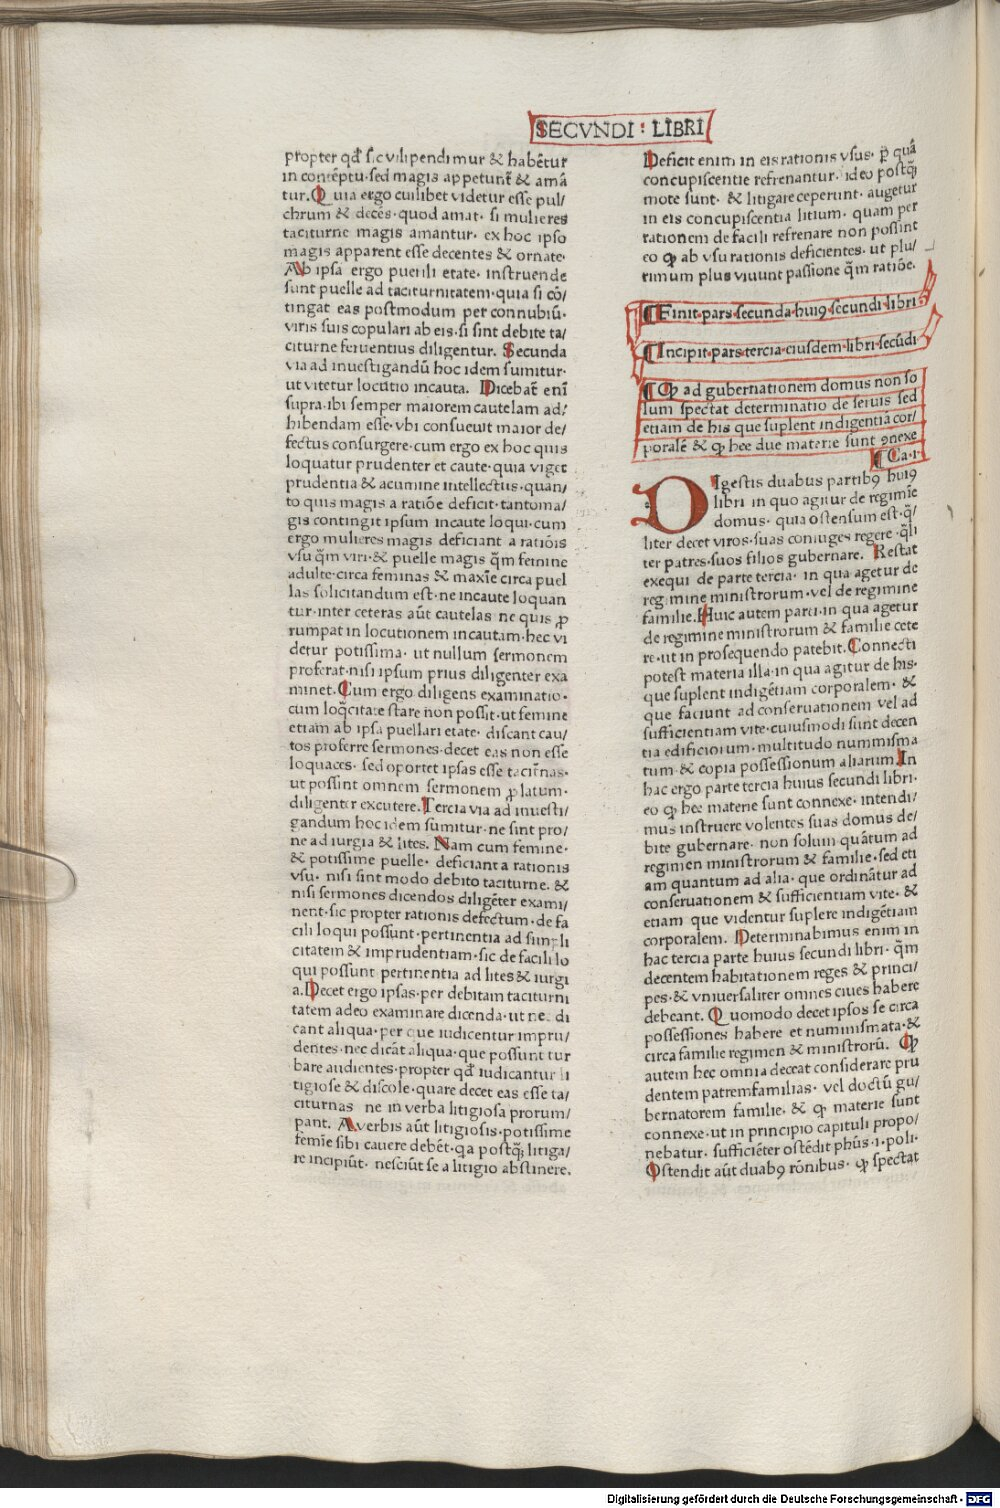 SECVNDI : LIBRI
propter qd̄ sic vilipendimur & habētur
in contēptu·sed magis appetunt̄ & amā
tur. Quia ergo cuilibet videtur esse pul/
chrum & decēs·quod amat· si mulieres
taciturne magis amantur· ex hoc ipso
magis apparent esse decentes & ornate·
Ab ipsa ergo puerili etate· instruende
sunt puelle ad taciturnitatem·quia si cō/
tingat eas postmodum per connubiū·
viris suis copulari ab eis·si sint debite ta/
citurne feruentius diligentur. Secunda
via ad inuestigandū hoc idem sumitur·
ut vitetur locutio incauta. Dicebat̄ enī
supra·ibi semper maiorem cautelam ad/
hibendam esse·vbi consueuit maior de/
fectus consurgere·cum ergo ex hoc quis
loquatur prudenter et caute·quia viget
prudentia & acumine intellectus·quan/
to quis magis a ratiōe deficit·tantoma/
gis contingit ipsum incaute loqui·cum
ergo mulieres magis deficiant a ratiōis
vsu q̄m viri·& puelle magis q̄m femine
adulte·circa feminas & maxīe circa puel
las solicitandum est·ne incaute loquan
tur·inter ceteras aūt cautelas ne quis ꝓ
rumpat in locutionem incautam·hec vi
detur potissima· ut nullum sermonem
proferat·nisi ipsum prius diligenter exa
minet. Cum ergo diligens examinatio·
cum loq̄citate stare non possit·ut femine
etiam ab ipsa puellari etate· discant cau/
tos proferre sermones·decet eas non esse
loquaces· sed oportet ipsas esse tacitr̄nas·
ut possint omnem sermonem ꝓlatum·
diligenter excutere. Tercia via ad inuesti/
gandum hoc idem sumitur·ne sint pro/
ne ad iurgia & lites. Nam cum femine·
& potissime puelle· deficiant a rationis
vsu· nisi sint modo debito taciturne. &
nisi sermones dicendos diligēter exami/
nent·sic propter rationis defectum·de fa
cili loqui possunt·pertinentia ad simpli
citatem & imprudentiam·sic de facili lo
qui possunt pertinentia ad lites & iurgi
a. Decet ergo ipsas·per debitam taciturni
tatem adeo examinare dicenda·ut nec di
cant aliqua·per que iudicentur impru/
dentes·nec dicāt aliqua·que possunt tur
bare audientes·propter qd̄ iudicantur li
tigiose & discole·quare decet eas esse ta/
citurnas ne in verba litigiosa prorum/
pant. A verbis aūt litigiosis·potissime
femīe sibi cauere debēt·qa postq̄; litiga/
re incipiūt· nesciūt se a litigio abstinere.
Deficit enim in eis rationis vsus· p̄ quā
concupiscentie refrenantur· ideo postq̄;
mote sunt· & litigare ceperunt· augetur
in eis concupiscentia litium· quam per
rationem de facili refrenare non possint
eo ꝙ ab vsu rationis deficientes· ut plu/
rimum plus viuunt passione q̄m ratiōe.
¶Finit·pars·secunda·huiꝯ·secundi·libri·
¶Incipit·pars·tercia·eiusdem·libri·secūdi
¶Ꝙ ad gubernationem domus non so
lum spectat determinatio de seruis sed
etiam de his que suplent indigentiā cor/
poralē & ꝙ hee due materie sunt ꝯnexe
¶Ca·i·
DIgestis duabus partibꝯ huiꝯ
libri in quo agitur de regimīe
domus· quia ostensum est·q̄/
liter decet viros·suas coniuges regere·q̄li
ter patres·suos filios gubernare. Restat
exequi de parte tercia· in qua agetur de
regimine ministrorum·vel de regimine
familie. Huic autem parti·in qua agetur
de regimine ministrorum & familie cete
re·ut in prosequendo patebit. Connecti
potest materia illa·in qua agitur de his·
que suplent indigētiam corporalem· &
que faciunt ad conseruationem vel ad
sufficientiam vite·cuiusmodi sunt decen
tia edificiorum·multitudo nummisma
tum·& copia possessionum aliarum. In
hac ergo parte tercia huius secundi libri·
eo ꝙ hee materie sunt connexe·intendi/
mus instruere volentes suas domus de/
bite gubernare· non solum quātum ad
regimen ministrorum & familie·sed eti
am quantum ad alia· que ordinātur ad
conseruationem & sufficientiam vite·&
etiam que videntur suplere indigētiam
corporalem. Determinabimus enim in
hac tercia parte huius secundi libri· q̄m
decentem habitationem reges & princi/
pes·& vniuersaliter omnes ciues habere
debeant. Quomodo decet ipsos se circa
possessiones habere et nummismata·&
circa familie regimen & ministrorū. Ꝙ
autem hec omnia deceat considerare pru
dentem patremfamilias· vel doctū gu/
bernatorem familie. & ꝙ materie sunt
connexe·ut in principio capituli propo/
nebatur· sufficiēter ostēdit ph̄us·i·poli·
Ostendit aūt duabꝯ rōnibus· ꝙ spectat
Digitalisierung gefördert durch die Deutsche Forschungsgemeinschaft · DFG